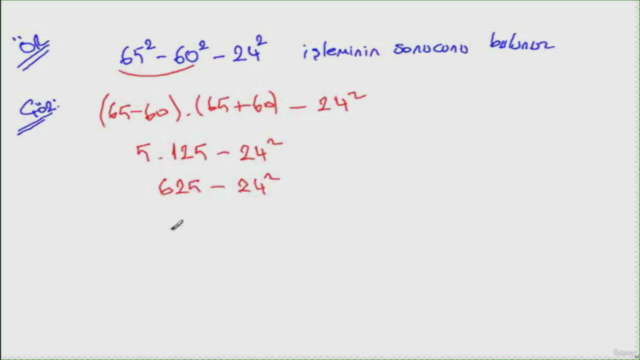 Ör: 65² - 60² - 24² işleminin sonucunu bulunuz
Çöz: (65-60).(65+60) - 24²
5.125 - 24²
625 - 24²